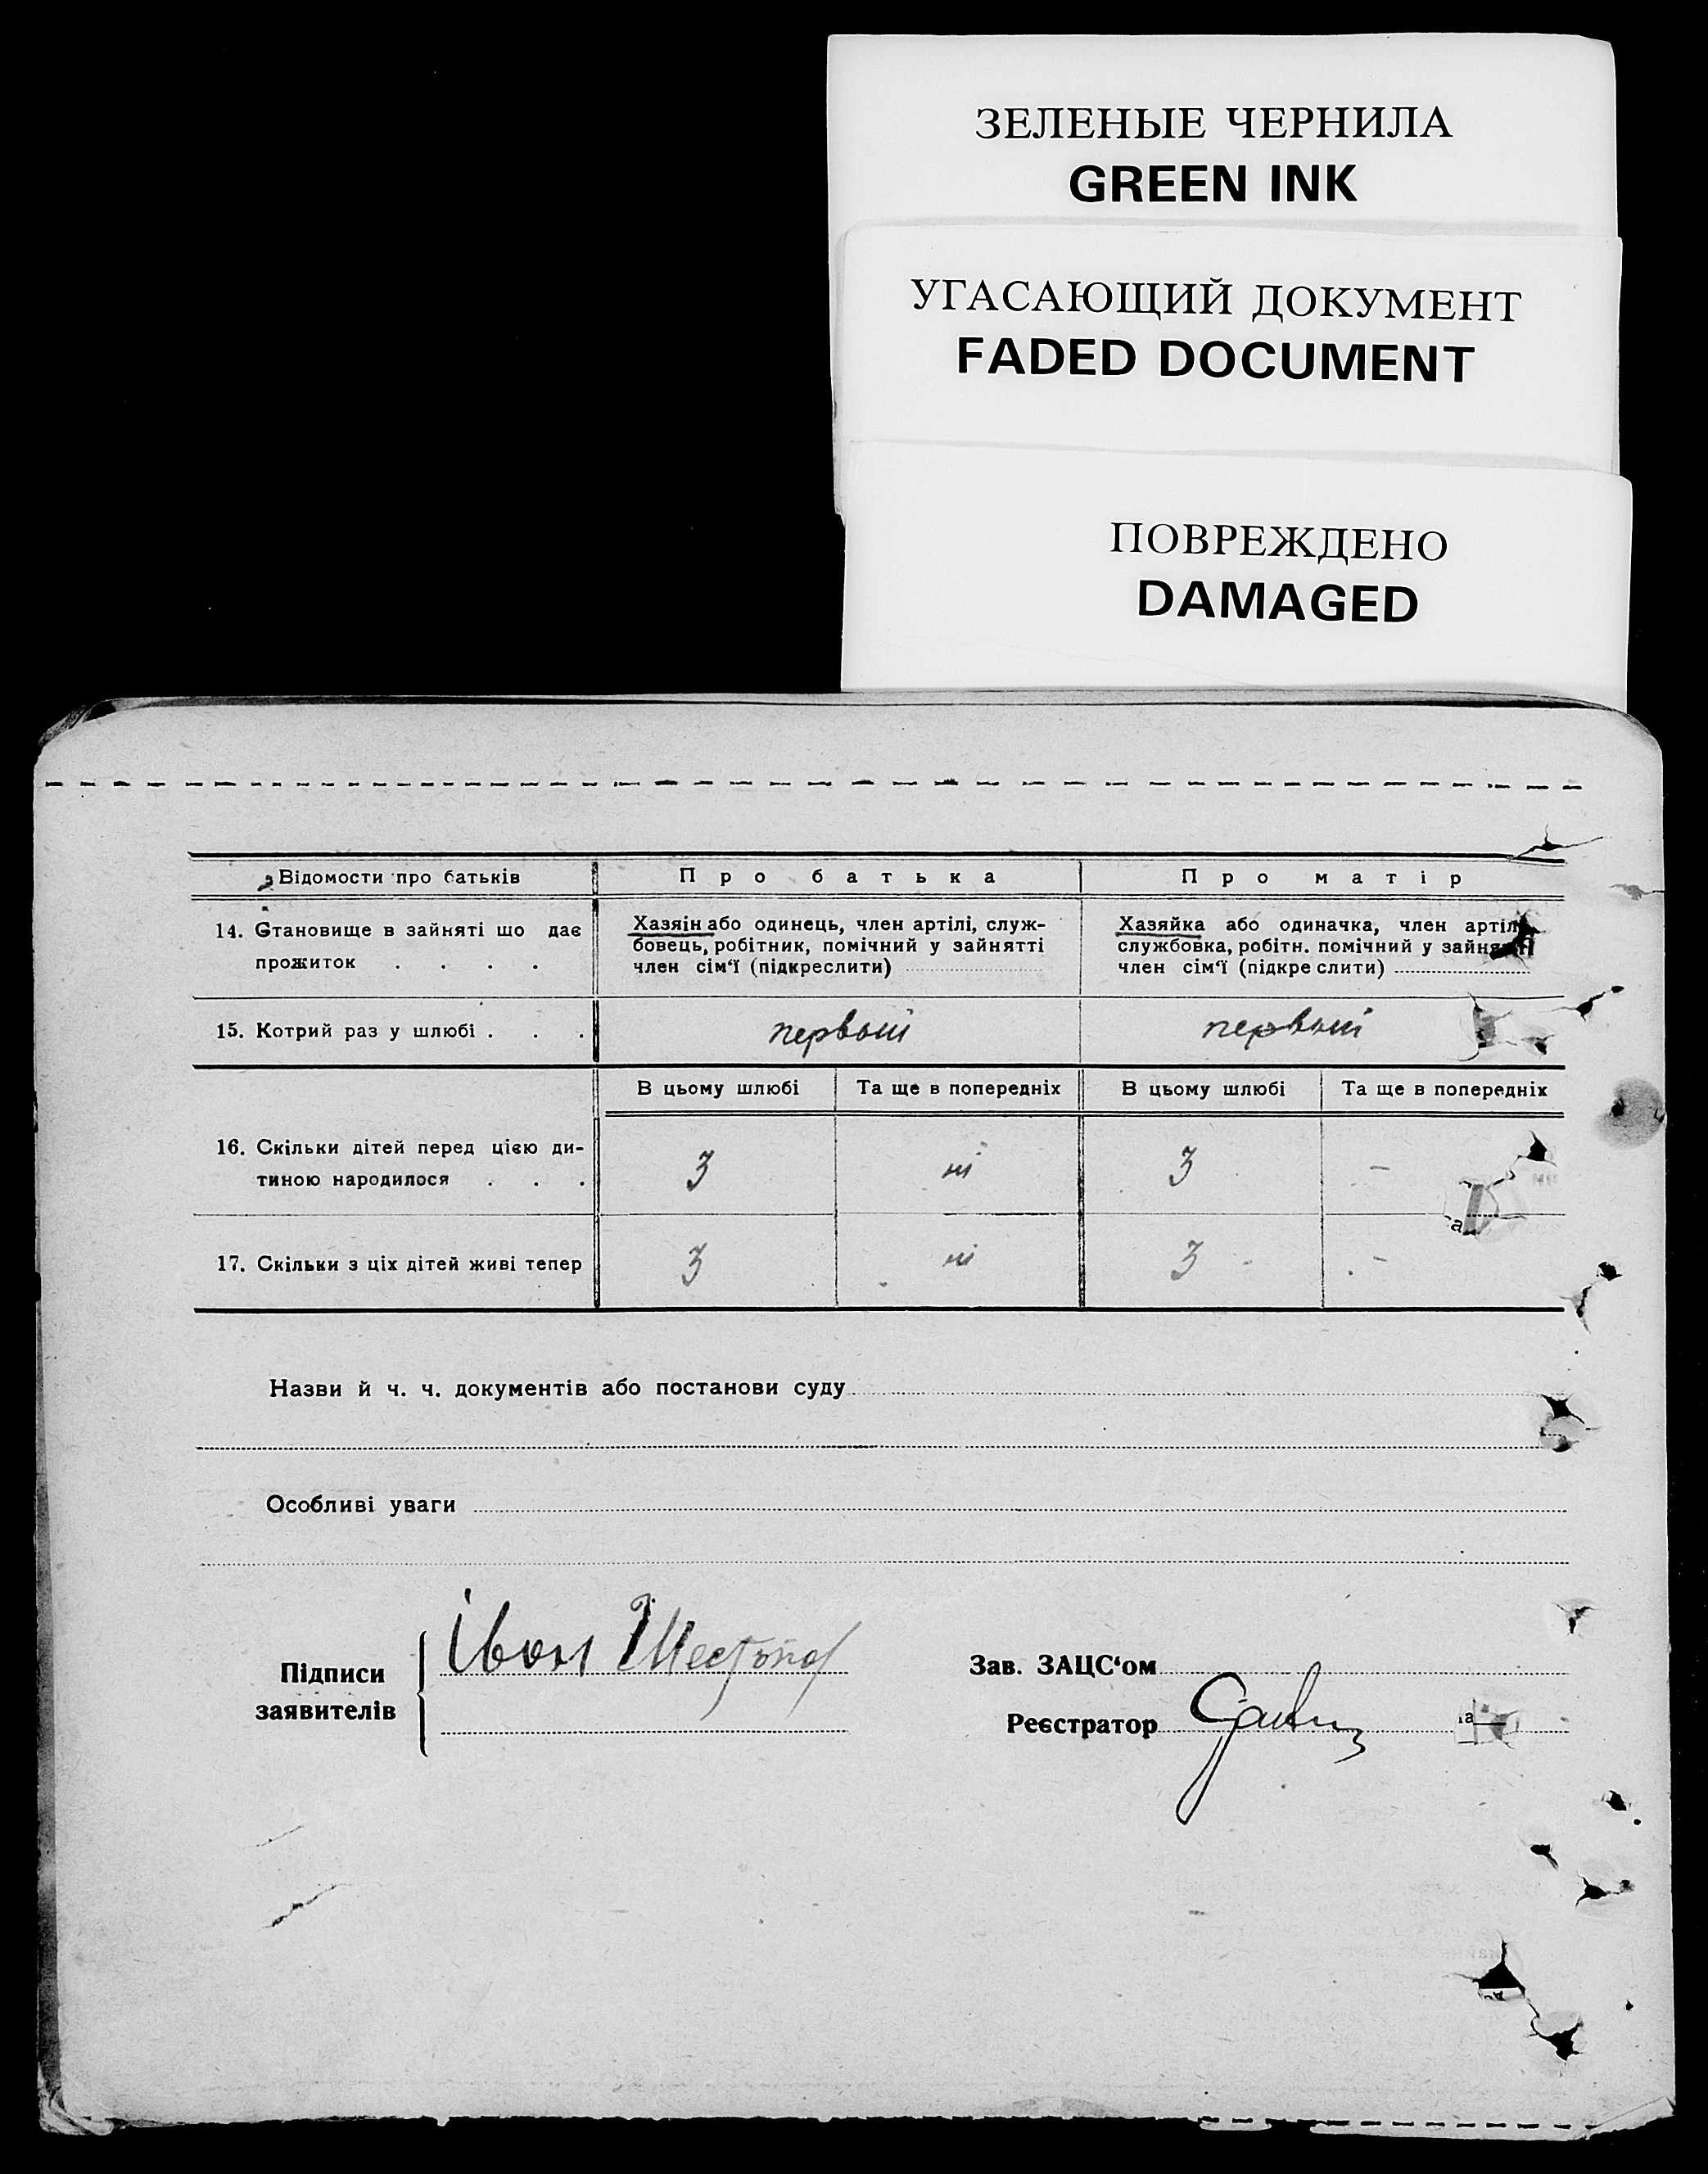 ЗЕЛЕНЫЕ ЧЕРНИЛА
GREEN INK
УГАСАЮЩИЙ ДОКУМЕНТ
FADED DOCUMENT
ПОВРЕЖДЕНО
DAMAGED
Відомости про батьків
Про батька
Про матір
14. Становище в зайняті що дає
прожиток . . . .
Хазяін або одинець, член артілі, служ-
бовець, робітник, помічний у зайнятті
член сім‘ї (підкреслити)
Хазяйка або одиначка, член артілі
службовка, робітн. помічний у зайнятті
член сім‘ї (підкреслити)
15. Котрий раз у шлюбі . . .
первый
первый
В цьому шлюбі
Та ще в попередніх
В цьому шлюбі
Та ще в попередніх
16. Скільки дітей перед цією ди-
тиною народилося . . .
3
ні
3
–
17. Скільки з ціх дітей живі тепер
3
ні
3
–
Назви й ч. ч. документів або постанови суду
Особливі уваги
Підписи
заявителів
Іван
Зав. ЗАЦС‘ом
Реєстратор